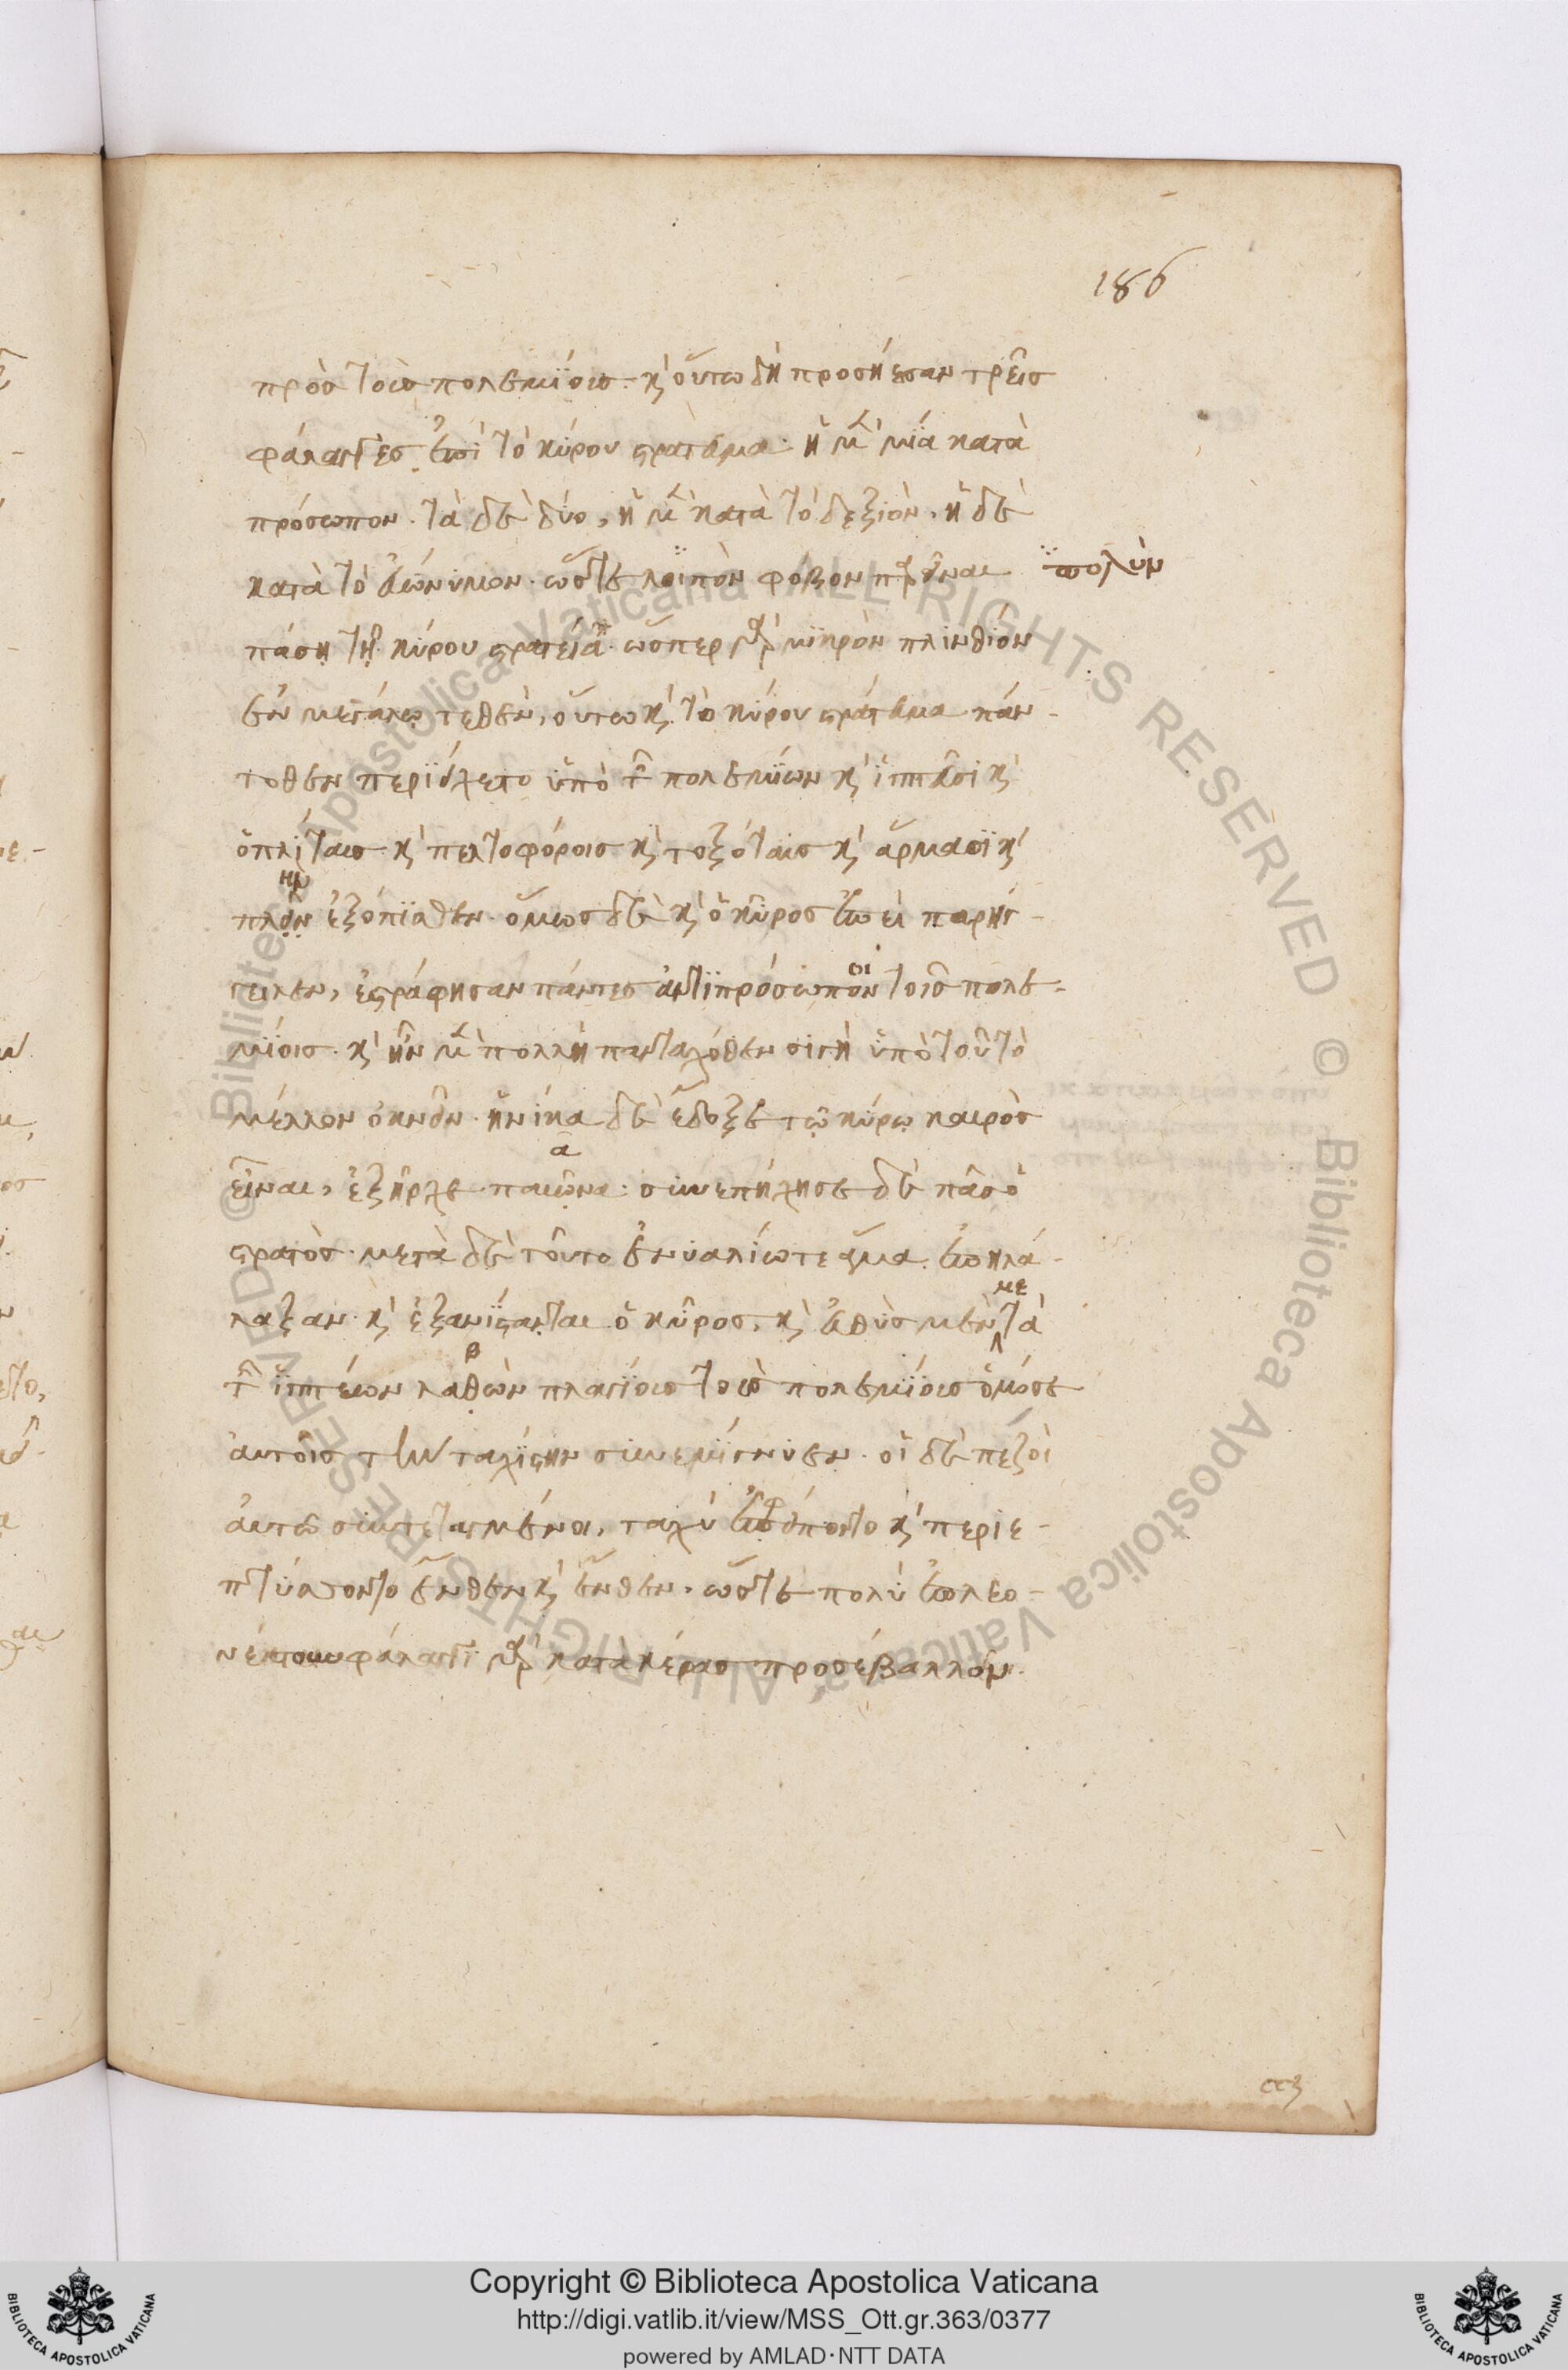 186
πρὸσ τοῖσ πολεμϊοισ· κ̀ οὕτω δὴ προσήεσαν τρεῖσ
φάλαγγεσ ἐπὶ τὸ κύρου στράτευμα· ἡ μὲν μΐα κατὰ
πρόσωπον· τὰ δὲ δύο, ἡ μὲν κατὰ τὸ δεξιὸν, ἡ δὲ
κατὰ τὸ εὐώνυμον· ὥστε λοϊπὸν φόβον παρεῖναι πολὺν
πάσῃ τῇ κύρου στρατείᾶ· ὥσπερ γὰρ μϊκρὸν πλινθίον
ἐν μεγάλω τεθὲν, οὕτω κ̀ τὸ κύρου στράτευμα πάν-
τοθεν περϊείχετο ὑπὸ τῶν πολεμΐων κ̀ ἱππεῦσι κ̀
ὁπλίταισ κ̀ πελτοφόροισ κ̀ τοξόταισ κ̀ ἅρμασϊ κ̀
πλεῖν ἐξόπϊσθεν· ὅμωσ δὲ κ̀ ὁ κῦροσ ἐπεὶ παρήγ-
γειλεν, ἐστράφησαν πάντεσ ἀντϊπρόσωπον τοῖσ πολε-
μϊοισ· κ̀ ἦν μὲν πολλὴ πανταχόθεν σιγὴ ὑπὸ τοῦ τὸ
μέλλον ὀκνεῖν· ἡνίκα δὲ ἔδοξε τῷ κύρῳ καιρὸσ
εἶναι, ἐξῆρχε παιῶνα· συνεπήχησε δὲ πᾶσ ὁ
στρατὸσ· μετὰ δὲ τοῦτο ἐνυαλίωτε ἅμα ἐπηλά-
λαξαν· κ̀ ἐξανΐστανται ὁ κῦροσ, κ̀ εὐθὺσ μὲν με τὰ
τῶν ἱππέων λαθὼν πλαγϊοισ τοῖσ πολεμϊοισ ὁμόσε
ἀυτοῖσ τὴν ταχΐστην συνεμΐγνυεν· οἱ δὲ πεζοὶ
ἀυτῶ συντεταγμένοι, ταχὺ ἐφείποντο κ̀ περιε-
πτύσσοντο ἔνθεν κ̀ ἔνθεν, ὥστε πολὺ ἐπλεο-
νέκτουν φάλαγγϊ γὰρ κατὰ κέρασ προσέβαλλον.
Copyright © Biblioteca Apostolica Vaticana
http://digi.vatlib.it/view/MSS_Ott.gr.363/0377
powered by AMLAD·NTT DATA